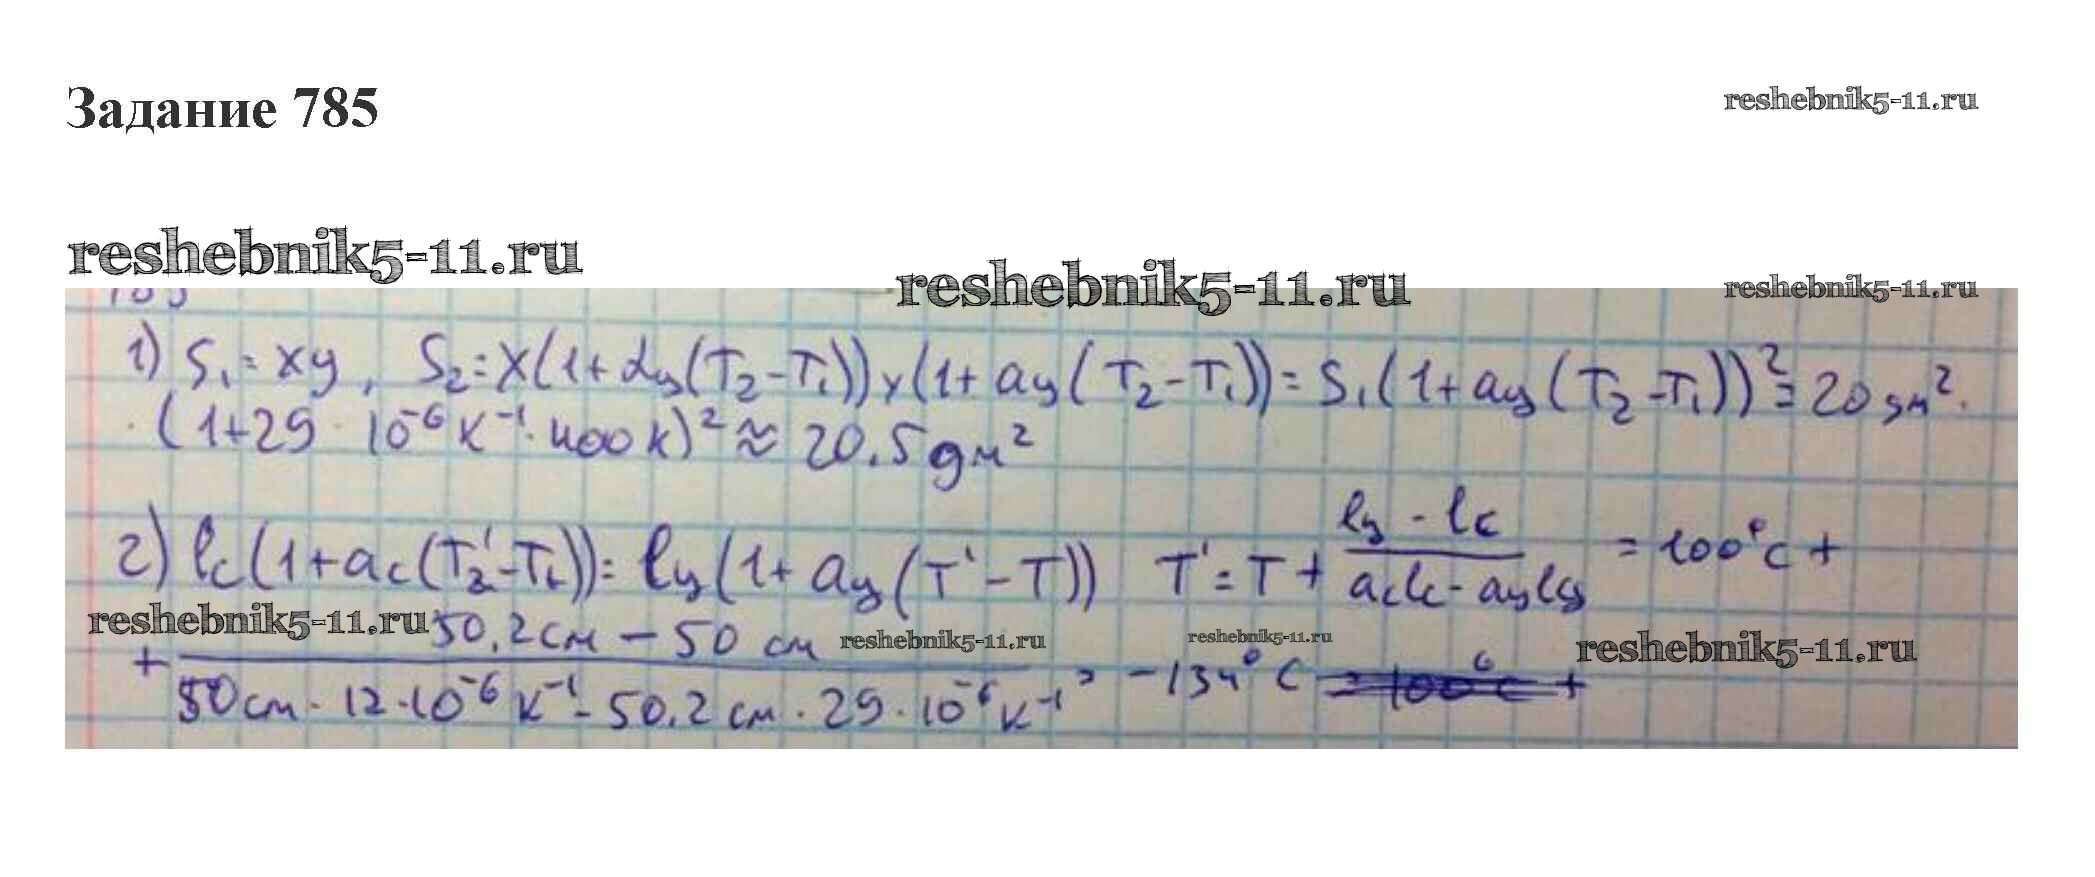 Задание 785
reshebnik5-11.ru
reshebnik5-11.ru
reshebnik5-11.ru
reshebnik5-11.ru
1) S₁ = xy, S₂ = x(1+αц(T₂-T₁))y(1+aц(T₂-T₁)) = S₁(1+aц(T₂-T₁))² = 20 дм² ·
· (1+29 · 10⁻⁶ K⁻¹ · 400 K)² ≈ 20.5 дм²
2) lc(1+ac(T₂'-T₁)) = lц(1+aц(T'-T)) T' = T + (lц - lc)/(aclc - aцlц) = 100°C +
reshebnik5-11.ru
+ (50,2 см - 50 см)/(50 см · 12 · 10⁻⁶ K⁻¹ - 50.2 см · 29 · 10⁻⁶ K⁻¹) = -134°C = 100°C +
reshebnik5-11.ru
reshebnik5-11.ru
reshebnik5-11.ru